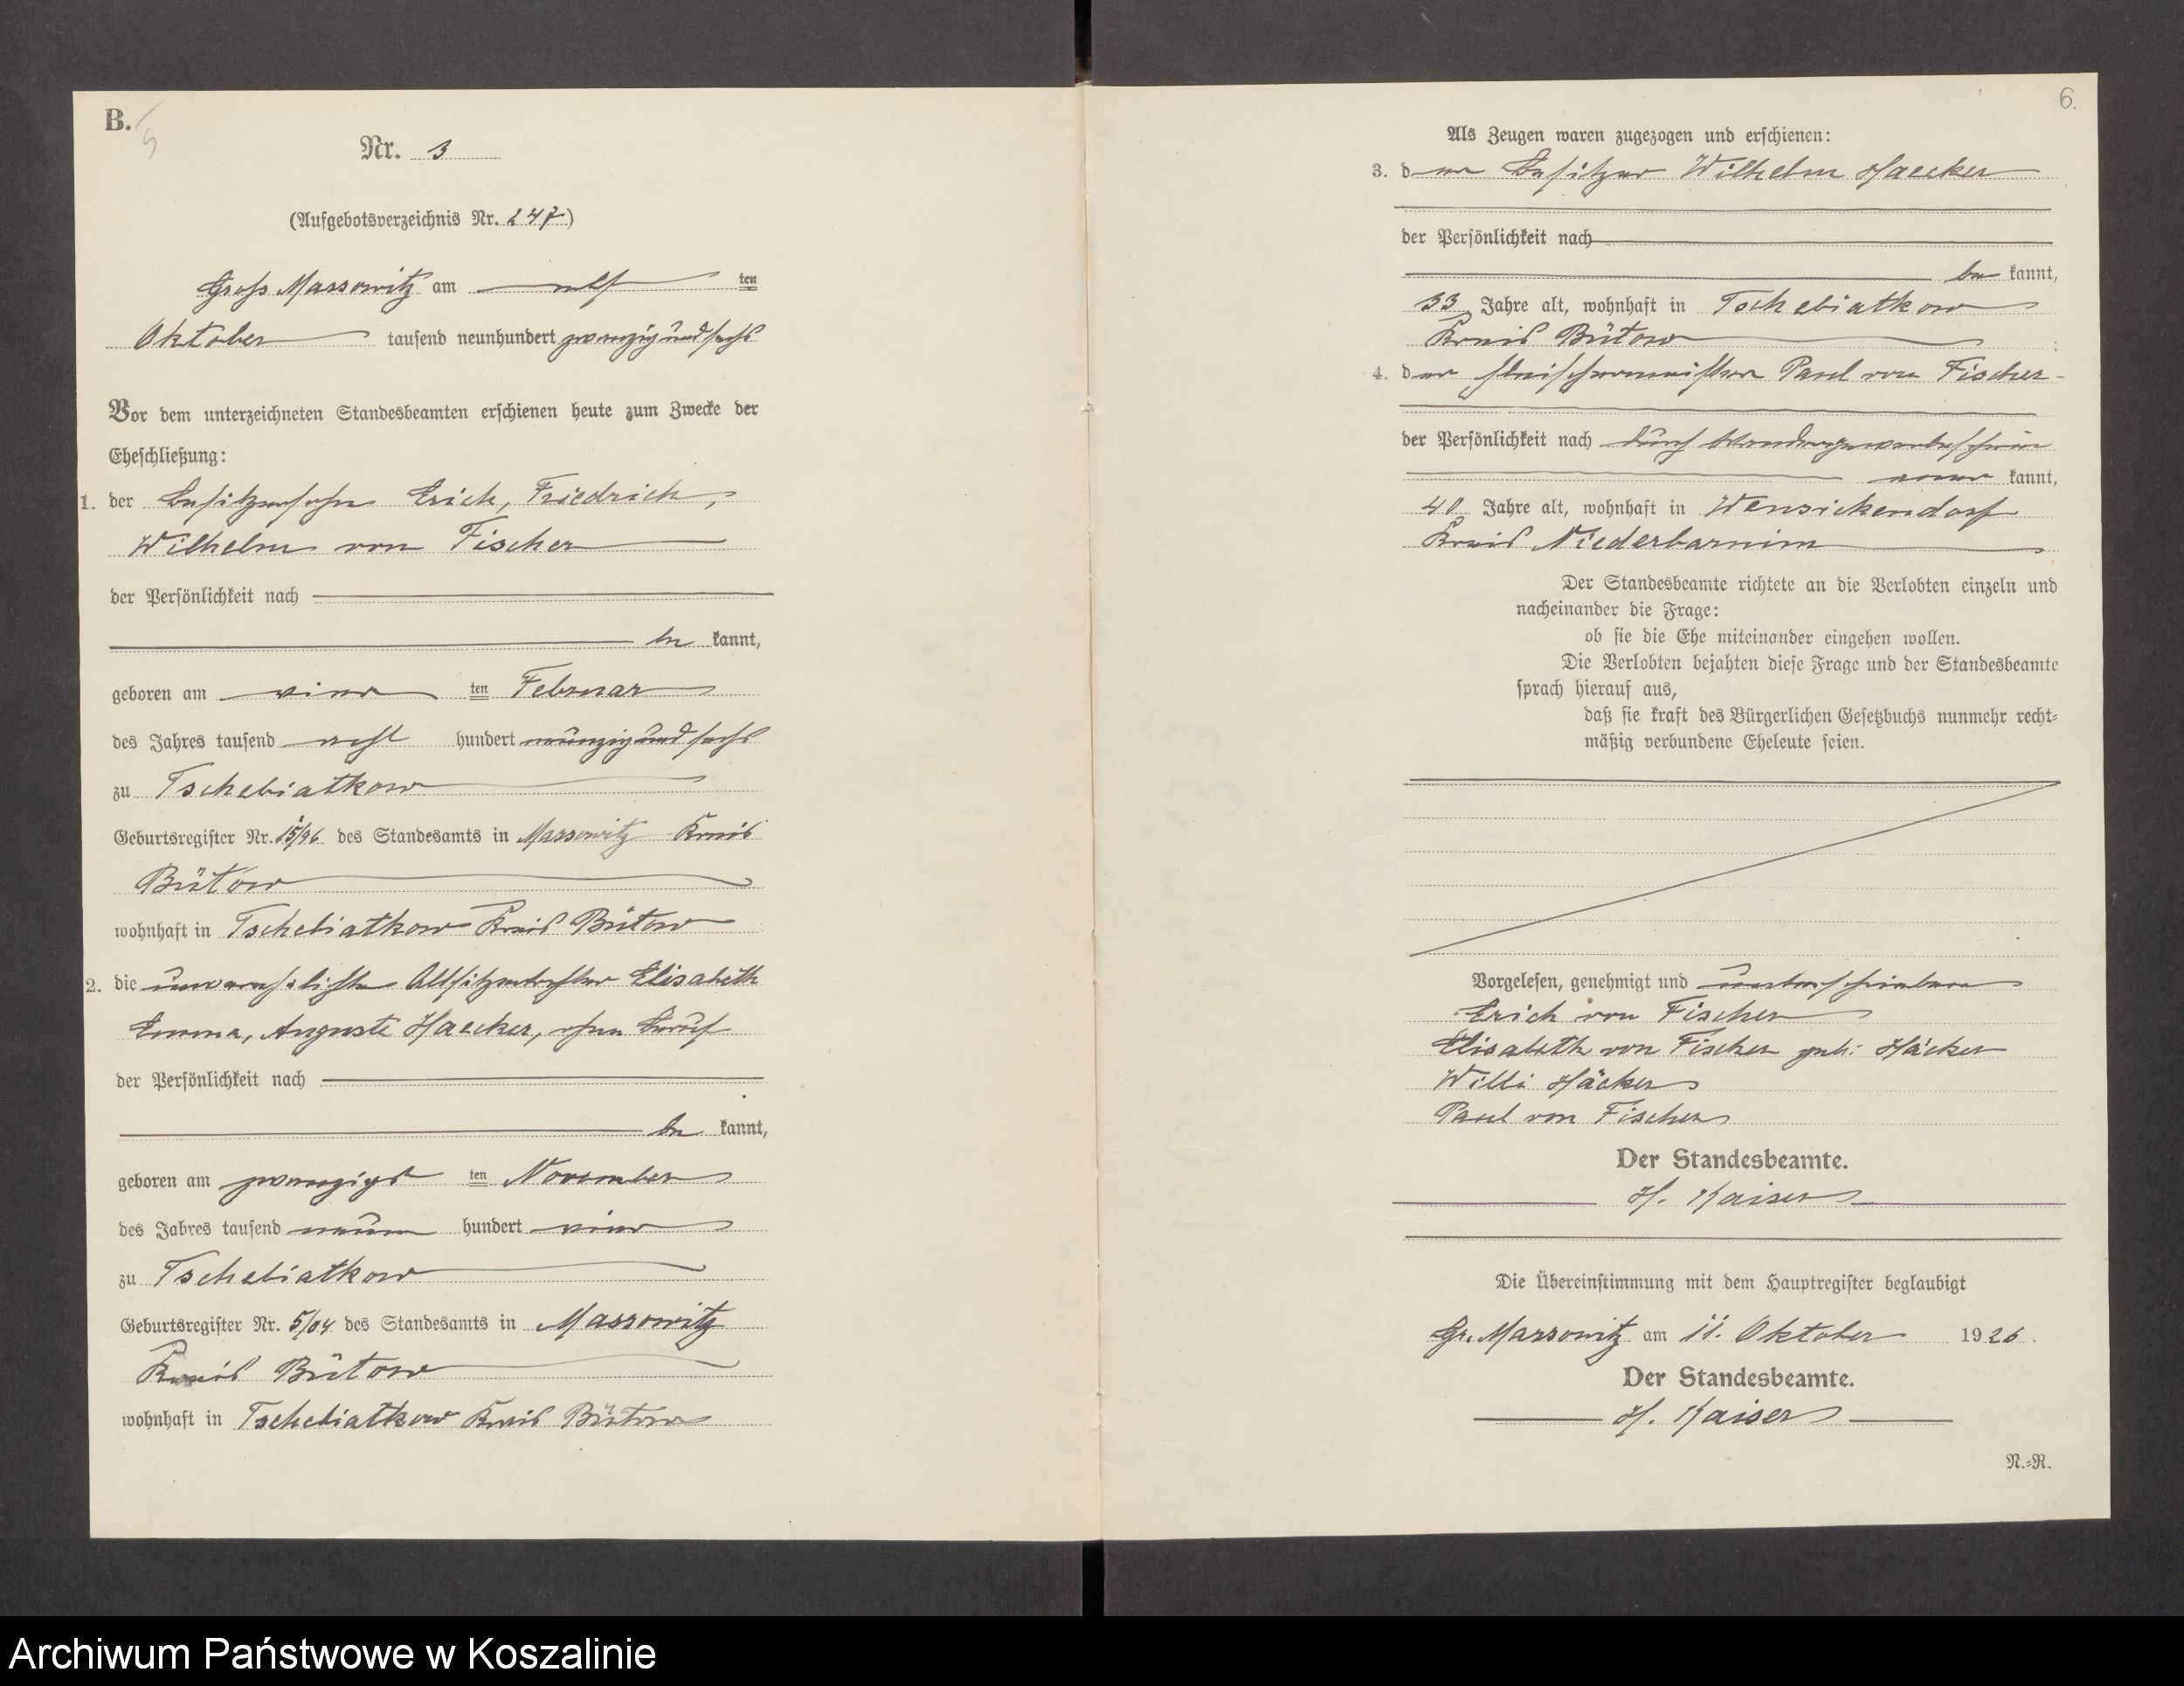 B.
5
Nr. 3
(Aufgebotsverzeichnis Nr. 247)
Gross Massowitz am elf ten
Oktober tausend neunhundert zwanzigundsechs
Vor dem unterzeichneten Standesbeamten erschienen heute zum Zwecke der
Eheschließung:
1. der Besitzersohn Erich, Friedrich,
Wilhelm von Fischer
der Persönlichkeit nach
be kannt,
geboren am vier ten Februar
des Jahres tausend acht hundert neunzigundsechs
zu Tschebiatkow
Geburtsregister Nr. 15/96 des Standesamts in Massowitz Kreis
Bütow
wohnhaft in Tschebiatkow Kreis Bütow
2. die unverehelichte Altsitzertochter Elisabeth
Emma, Auguste Haecker, ohne Beruf
der Persönlichkeit nach
be kannt,
geboren am zwanzigs ten November
des Jahres tausend neun hundert vier
zu Tschebiatkow
Geburtsregister Nr. 5/04 des Standesamts in Massowitz
Kreis Bütow
wohnhaft in Tschebiatkow Kreis Bütow
6.
Als Zeugen waren zugezogen und erschienen:
3. der Besitzer Wilhelm Haecker
der Persönlichkeit nach
be kannt,
33 Jahre alt, wohnhaft in Tschebiatkow
Kreis Bütow ;
4. der Fleischermeister Paul von Fischer
der Persönlichkeit nach durch Wandergewerbeschein
aner kannt,
40 Jahre alt, wohnhaft in Wensickendorf
Kreis Niederbarnim
Der Standesbeamte richtete an die Verlobten einzeln und
nacheinander die Frage:
ob sie die Ehe miteinander eingehen wollen.
Die Verlobten bejahten diese Frage und der Standesbeamte
sprach hierauf aus,
daß sie kraft des Bürgerlichen Gesetzbuchs nunmehr recht-
mäßig verbundene Eheleute seien.
Vorgelesen, genehmigt und unterschrieben
Erich von Fischer
Elisabeth von Fischer geb. Häcker
Willi Häcker
Paul von Fischer
Der Standesbeamte.
H. Kaiser
Die Übereinstimmung mit dem Hauptregister beglaubigt
Gr. Massowitz am 11. Oktober 1926.
Der Standesbeamte.
H. Kaiser
N.-R.
Archiwum Państwowe w Koszalinie